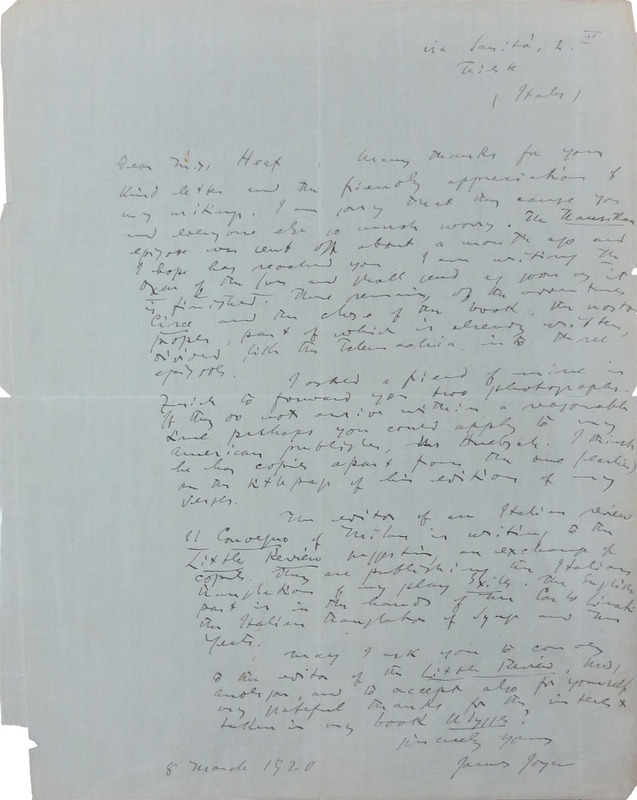 via Sanità, 2. III
Trieste
(Italy)
Dear Miss Heap : Many thanks for your
kind letter and the friendly appreciation of
my writings. I am sorry that they cause you
and everyone else so much worry. The Nausikaa
episode was sent off about a month ago and
I hope has reached you. I am writing the
Oxen of the Sun and shall send as soon as it
is finished. There remains of the adventures
Circe and the close of the book, the nostos
proper, part of which is already written,
divided like the Telemachia into three
episodes.
I asked a friend of mine in
Zurich to forward you two photographs.
If they do not arrive within a reasonable
time perhaps you could apply to my
American publisher, Mr Huebsch. I think
he has copies apart from the one
on the title page of his edition of my
verses.
The editor of an Italian review
Il Convegno of Milan is writing to the
Little Review suggesting an exchange of
copies. They are publishing the Italian
translation of my play Exiles. The English
part is in the hands of Mr Carlo Linati
the Italian translator of Synge and Mr
Yeats.
May I ask you to convey
to the editor of the Little Review, Miss
Anderson, and to accept also for yourself
my grateful thanks for the interest
taken in my book Ulysses?
Sincerely yours
James Joyce
8 March 1920